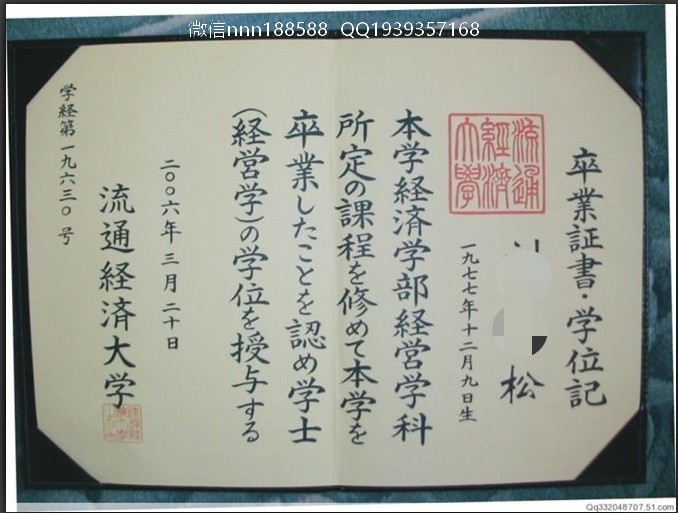 微信nnn188588 QQ1939357168
卒業証書・学位記
流通
經濟
大學
松
一九七七年十二月九日生
本学経済学部経営学科
所定の課程を修めて本学を
卒業したことを認め学士
(経営学)の学位を授与する
二〇〇六年三月二十日
流通経済大学
学経第一九六三〇号
Qq332048707.51.com